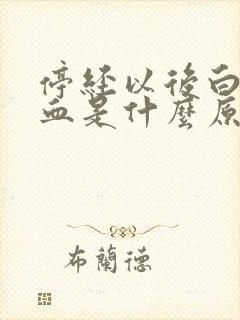 停経以後白
血是什麼原
布蘭德